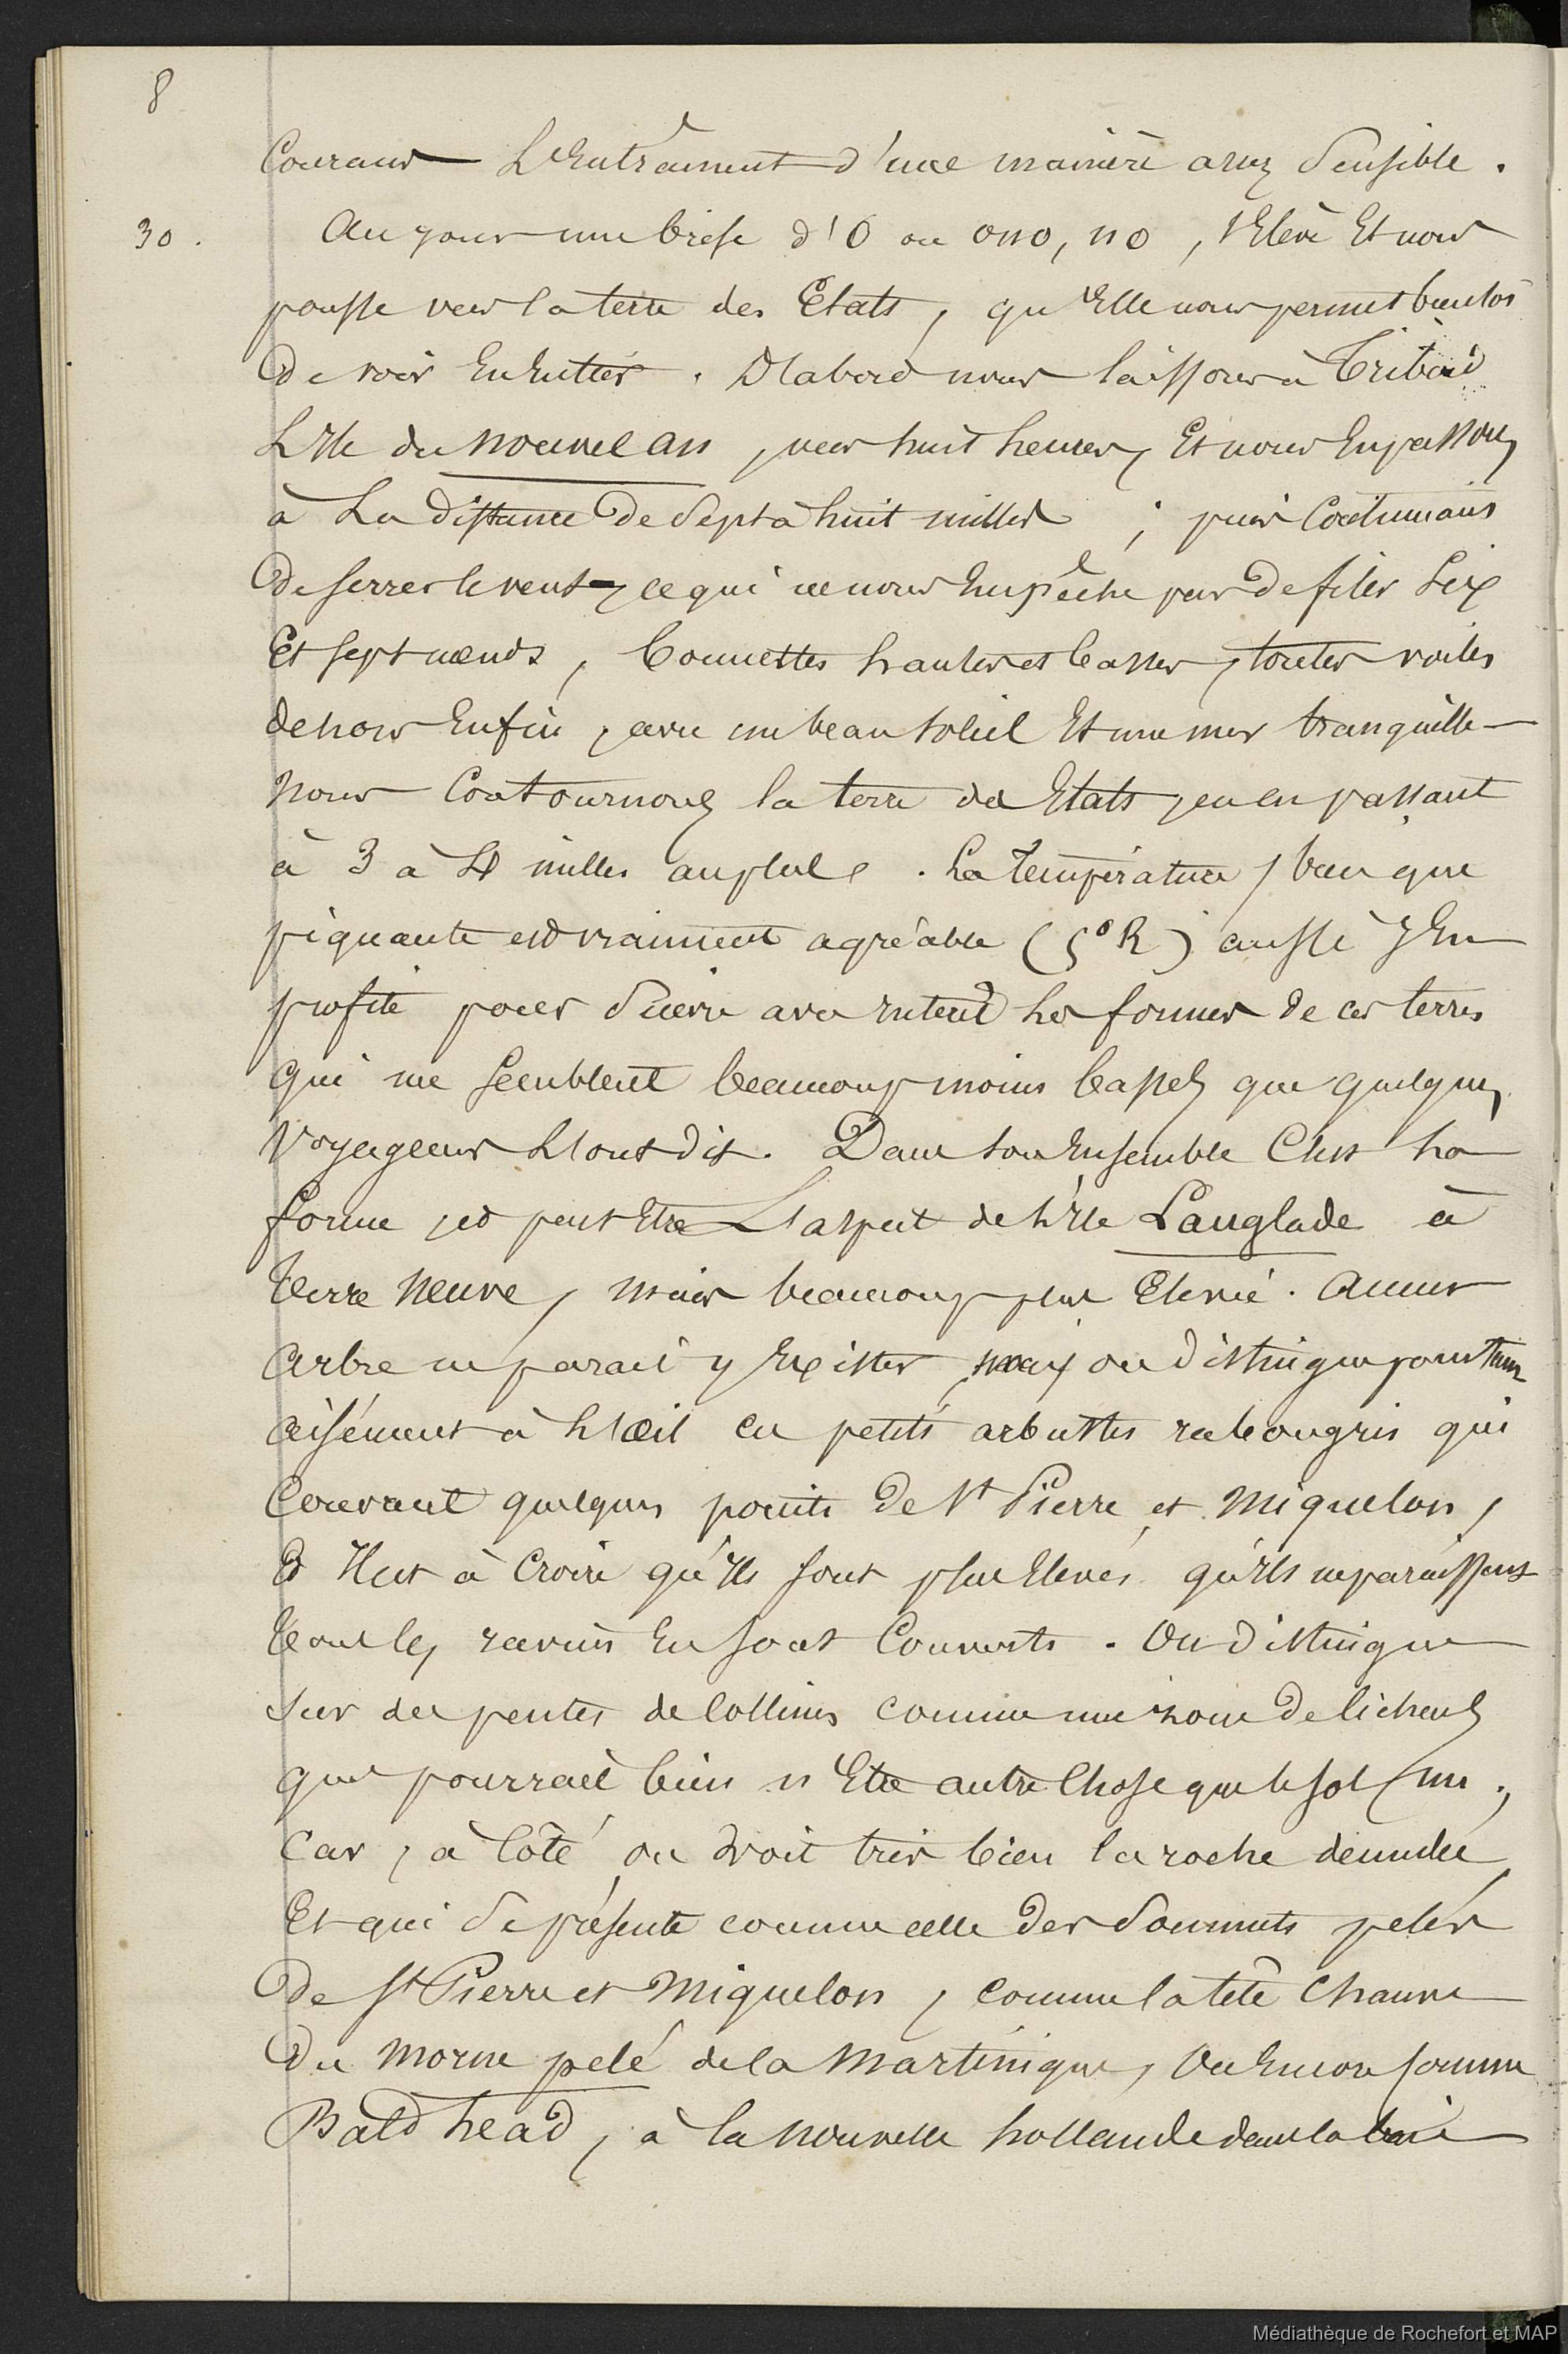 8
Courans L'Entrainent d'une manière assez Sensible.
30. Au jour une brise d'O ou ONO, NO, s'Elève Et nous
pousse vers la terre des Etats, qu'Elle nous permet bientot
De voir En Entier. D'abord nous laissons à Tribord
L'Ile du Nouvel an, vers huit heures, Et nous En passons
à La distance De Sept à huit milles ; puis Continuons
De serrer le vent, ce qui ne nous Empêche pas De filer Six
Et sept nœuds, Bonnettes hautes et basses, toutes voiles
dehors Enfin, avec un beau Soleil Et une mer tranquille
Nous Contournons la terre des Etats, en en passant
à 3 à 4 milles au plus. La Température, bien que
piquante est vraiment agréable (5° R) aussi J'En
profite pour Suivre avec Interêt Les formes de ces terres
qui me Semblent beaucoup moins basses que quelques
Voyageurs L'ont dit. Dans Son Ensemble C'est La
forme, et peut Etre L'aspect de L'Ile Langlade à
Terre Neuve, mais beaucoup plus Elevée. Aucun
Arbre ne parait y Exister, mais on distingue pourtant
aisément à L'œil ces petits arbustes rabougris qui
Couvrent quelques points De St Pierre et Miquelon,
Et Il est à Croire qu'Ils sont plus Elevés qu'Ils ne paraissent
Tous les ravins En sont Couverts. On distingue
Sur des pentes de Collines comme une zone De lichens
qui pourrait bien n'Etre autre Chose que le sol nu ;
Car, à Côté, on voit très bien la roche denudée,
Et qui Se présente comme celle Des Sommets pelés
De St Pierre et Miquelon, comme la tête Chauve
Du Morne pelé de la Martinique, Ou Encore comme
Bald head, à la Nouvelle hollande dans la baie
Médiathèque de Rochefort et MAP